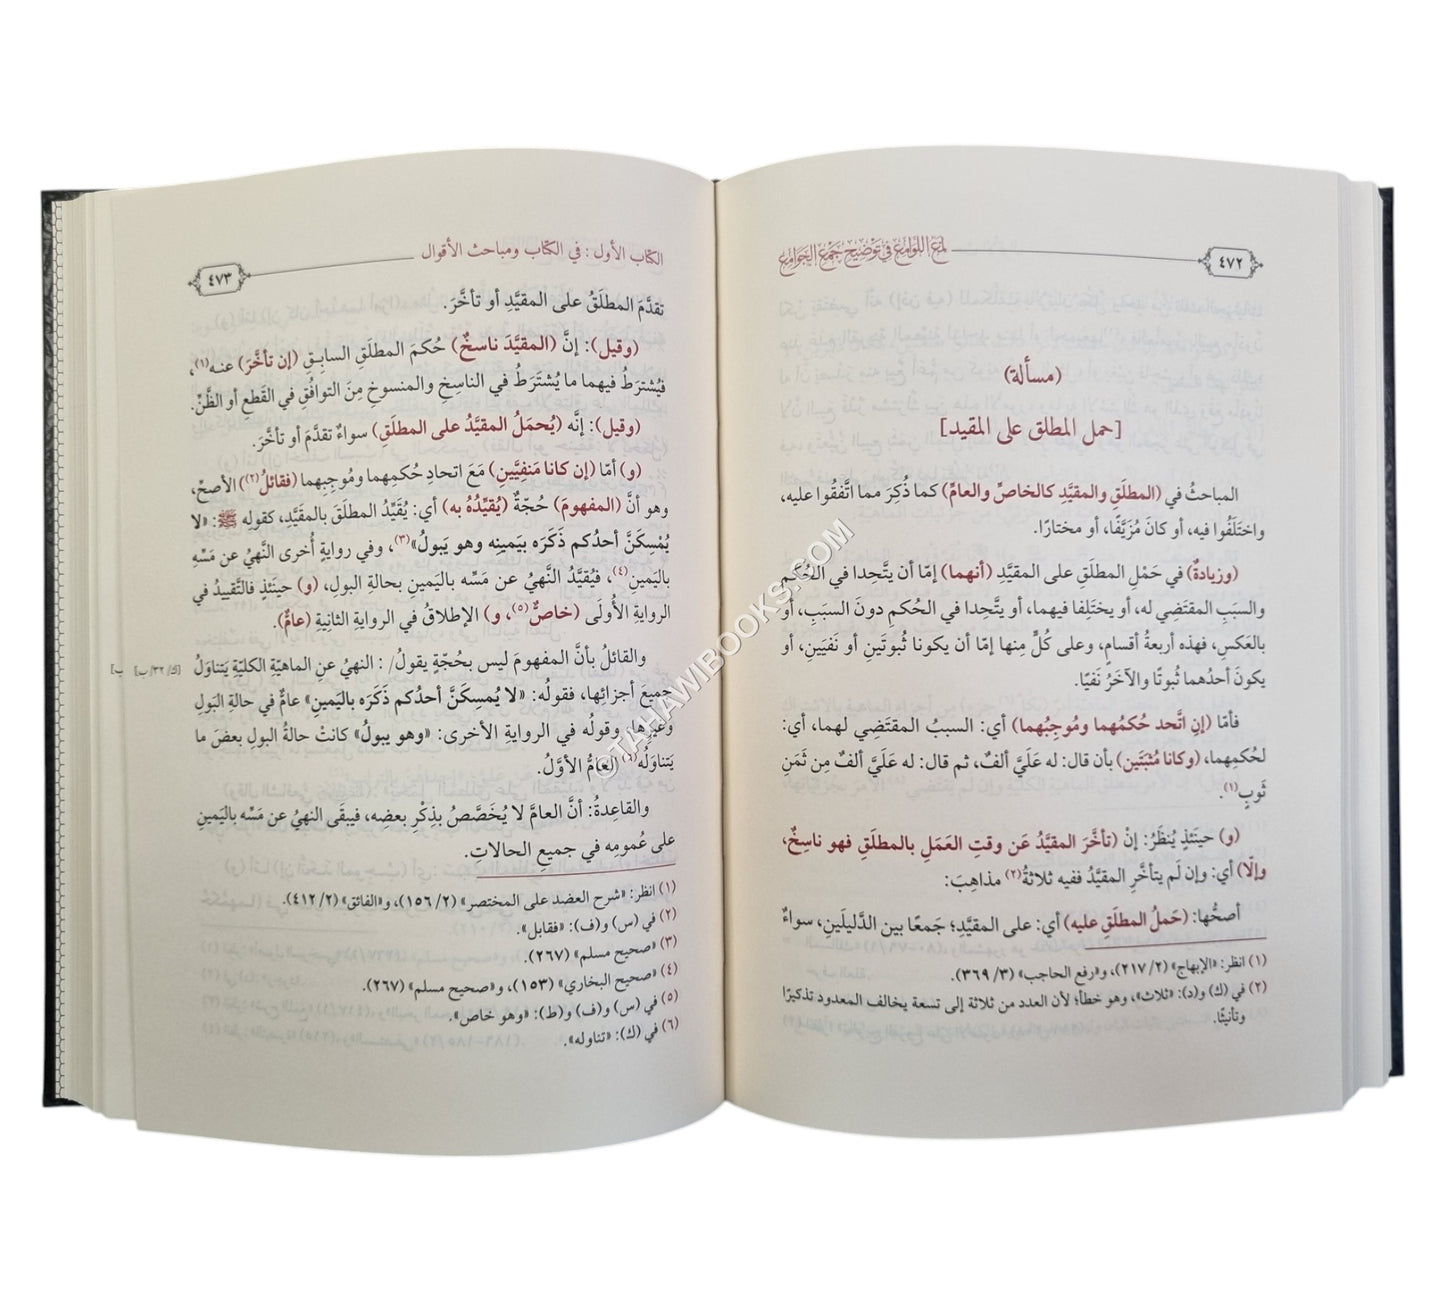 لمع اللوامع في توضيح جمع الجوامع
٤٧٢
(مسألة)
[حمل المطلق على المقيد]
المباحثُ في (المطلَقِ والمقيَّدِ كالخاصِّ والعامِّ) كما ذُكِرَ مما اتَّفَقُوا عليه،
واختَلَفُوا فيه، أو كانَ مُزَيَّفًا، أو مختارًا.
(وزيادةٌ) في حَمْلِ المطلَقِ على المقيَّدِ (أنهما) إمّا أن يتَّحِدا في الحُكمِ
والسبَبِ المقتَضِي له، أو يختَلِفا فيهما، أو يتَّحِدا في الحُكمِ دونَ السبَبِ، أو
بالعَكسِ، فهذه أربعةُ أقسامٍ، وعلى كُلٍّ مِنها إمّا أن يكونا ثُبوتَينِ أو نَفيَينِ، أو
يكونَ أحدُهما ثُبوتًا والآخَرُ نَفيًا.
فأمّا (إنِ اتَّحد حُكمُهما ومُوجِبُهما) أي: السببُ المقتَضِي لهما، أي:
لحُكمِهما، (وكانا مُثبَتَين) بأن قال: له عَلَيَّ ألفٌ، ثم قال: له عَلَيَّ ألفٌ مِن ثَمَنِ
ثَوبٍ(١).
(و) حينَئذٍ يُنظَرُ: إنْ (تأخَّرَ المقيَّدُ عَن وقتِ العَمَلِ بالمطلَقِ فهو ناسِخٌ،
وإلّا) أي: وإن لَم يتأخَّرِ المقيَّدُ ففيه ثلاثةُ(٢) مذاهِبَ:
أصحُّها: (حَملُ المطلَقِ عليه) أي: على المقيَّدِ؛ جَمعًا بين الدَّليلَينِ، سواءٌ
(١) انظر: «الإبهاج» (٢/ ٢١٧)، و«رفع الحاجب» (٣/ ٣٦٩).
(٢) في (ك) و(د): «ثلاث»، وهو خطأ؛ لأن العدد من ثلاثة إلى تسعة يخالف المعدود تذكيرًا
وتأنيثًا.
الكتاب الأول : في الكتاب ومباحث الأقوال
٤٧٣
تقدَّمَ المطلَقُ على المقيَّدِ أو تأخَّرَ.
(وقيل): إنَّ (المقيَّدَ ناسخٌ) حُكمَ المطلَقِ السابِقِ (إن تأخَّرَ) عنه(١)،
فيُشترَطُ فيهما ما يُشتَرَطُ في الناسِخِ والمنسوخِ مِنَ التوافُقِ في القَطعِ أو الظَّنِّ.
(وقيل): إنَّه (يُحمَلُ المقيَّدُ على المطلَقِ) سواءٌ تقدَّمَ أو تأخَّرَ.
(و) أمّا (إن كانا مَنفِيَّينِ) مَعَ اتحادِ حُكمِهما ومُوجِبِهما (فقائلُ(٢)) الأصحِّ،
وهو أنَّ (المفهومَ) حُجّةٌ (يُقيِّدُهُ به) أي: يُقَيِّدُ المطلَقَ بالمقَيَّدِ، كقولِه ﷺ: «لا
يُمْسِكَنَّ أحدُكم ذَكَرَه بيَمينِه وهو يَبولُ»(٣)، وفي روايةٍ أُخرى النَّهيُ عن مَسِّه
باليَمينِ(٤)، فيُقيَّدُ النَّهيُ عن مَسِّه باليمينِ بحالةِ البولِ، (و) حينَئذٍ فالتَّقييدُ في
الروايةِ الأُولَى (خاصٌّ(٥)، و) الإطلاقُ في الروايةِ الثانِيَةِ (عامٌّ).
والقائلُ بأنَّ المفهومَ ليس بحُجّةٍ يقولُ/ : النهيُ عنِ الماهيّةِ الكليّةِ يَتناوَلُ
[ك/ ٣٢/ ب]
جميعَ أجزائِها، فقولُه: «لا يُمسِكَنَّ أحدُكم ذَكَرَه باليَمينِ» عامٌّ في حالةِ البَولِ
وغيرِها، وقولُه في الروايةِ الأخرى: «وهو يبولُ» كانتْ حالةُ البولِ بعضَ ما
يَتناوَلُه(٦) العَامُّ الأوَّلُ.
والقاعِدةُ: أنَّ العامَّ لا يُخَصَّصُ بذِكْرِ بعضِه، فيبقَى النهيُ عن مَسِّه باليَمينِ
على عُمومِه في جميعِ الحالاتِ.
(١) انظر: «شرح العضد على المختصر» (٢/ ١٥٦)، و«الفائق» (٢/ ٤١٢).
(٢) في (س) و(ف): «فقابل».
(٣) «صحيح مسلم» (٢٦٧).
(٤) «صحيح البخاري» (١٥٣)، و«صحيح مسلم» (٢٦٧).
(٥) في (س) و(ف) و(ط): «وهو خاص».
(٦) في (ك): «تناوله».
©TAHAWIBOOKS.COM